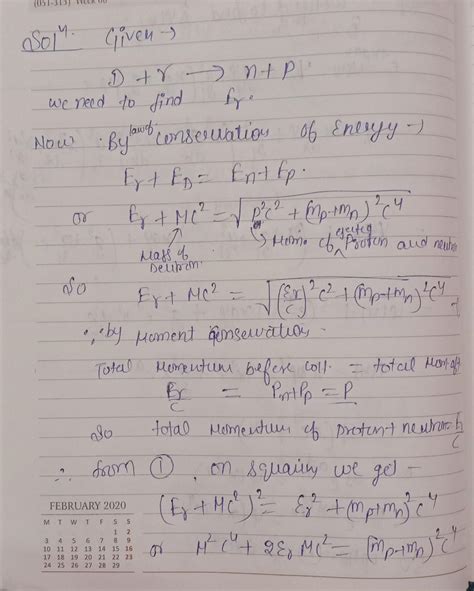 (051-315) Week 08
Solⁿ. Given →
D + r → n + p
we need to find Er.
Now : By law of conservation of Energy →
Er + ED = En + Ep.
or Er + MC² = √(P²C² + (mp+mn)²C⁴
Mass of Deutron. → Mom. of ejected Proton and neutron
So Er + MC² = √((Er/C)²C² + (mp+mn)²C⁴
∵ by Moment conservation.
Total Momentum before coll. = total Mom. aft
Er/C = Pn+Pp = P
So total Momentum of proton + neutron = Er/C
∴ from ①, on squaring we get –
(Er + MC²)² = Er² + (mp+mn)²C⁴
or M²C⁴ + 2Er MC² = (mp+mn)²C⁴
FEBRUARY 2020
M T W T F S S
1 2
3 4 5 6 7 8 9
10 11 12 13 14 15 16
17 18 19 20 21 22 23
24 25 26 27 28 29